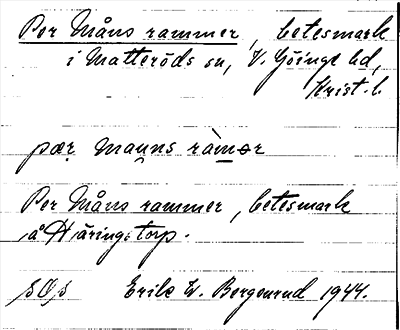 Per Måns rammer, betesmark
i Matteröds sn, V. Göinge hd,
Krist. l.
pær mauns ràmər
Per Måns rammer, betesmark
å Häringstorp.
Erik W. Bergenrud 1944.